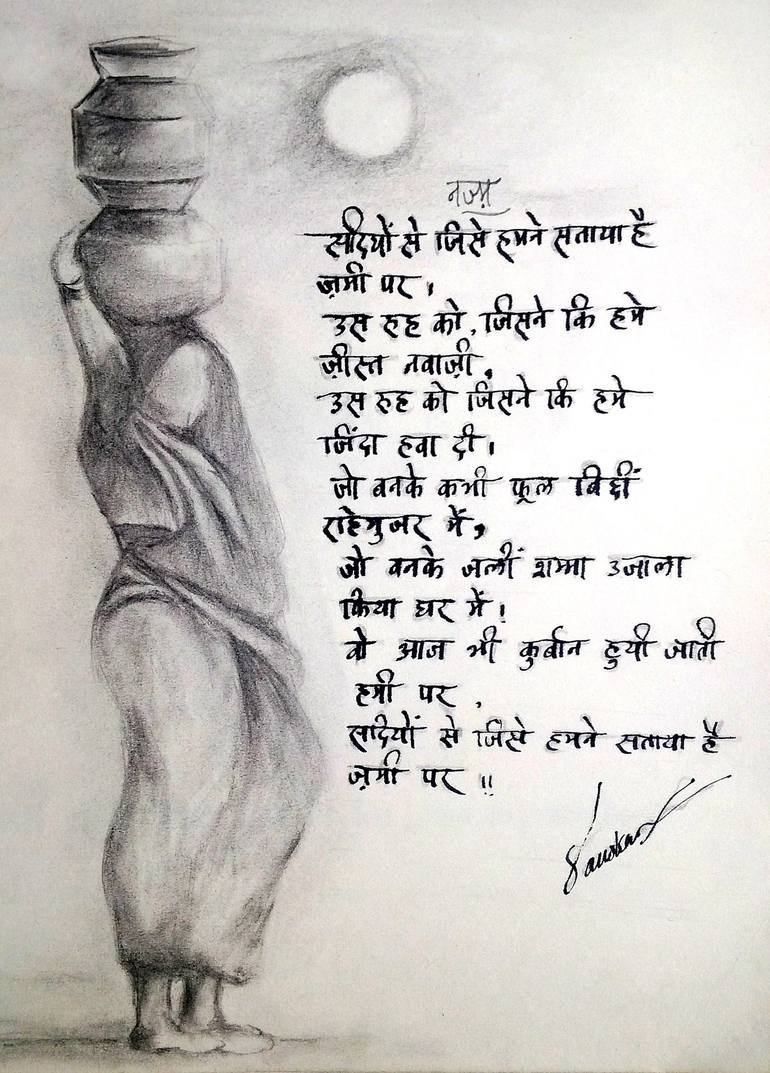 नज़्म
सदियों से जिसे हमने सताया है
ज़मी पर ।
उस रुह को, जिसने कि हमे
ज़ीस्त नवाज़ी,
उस रुह को जिसने कि हमे
जिंदा हवा दी ।
जो बनके कभी फूल बिछीं
राहेगुजर में,
जो बनके जलीं शम्मा उजाला
किया घर में !
वो आज भी कुर्बान हुयी जाती
हमी पर ,
सदियों से जिसे हमने सताया है
ज़मी पर !!